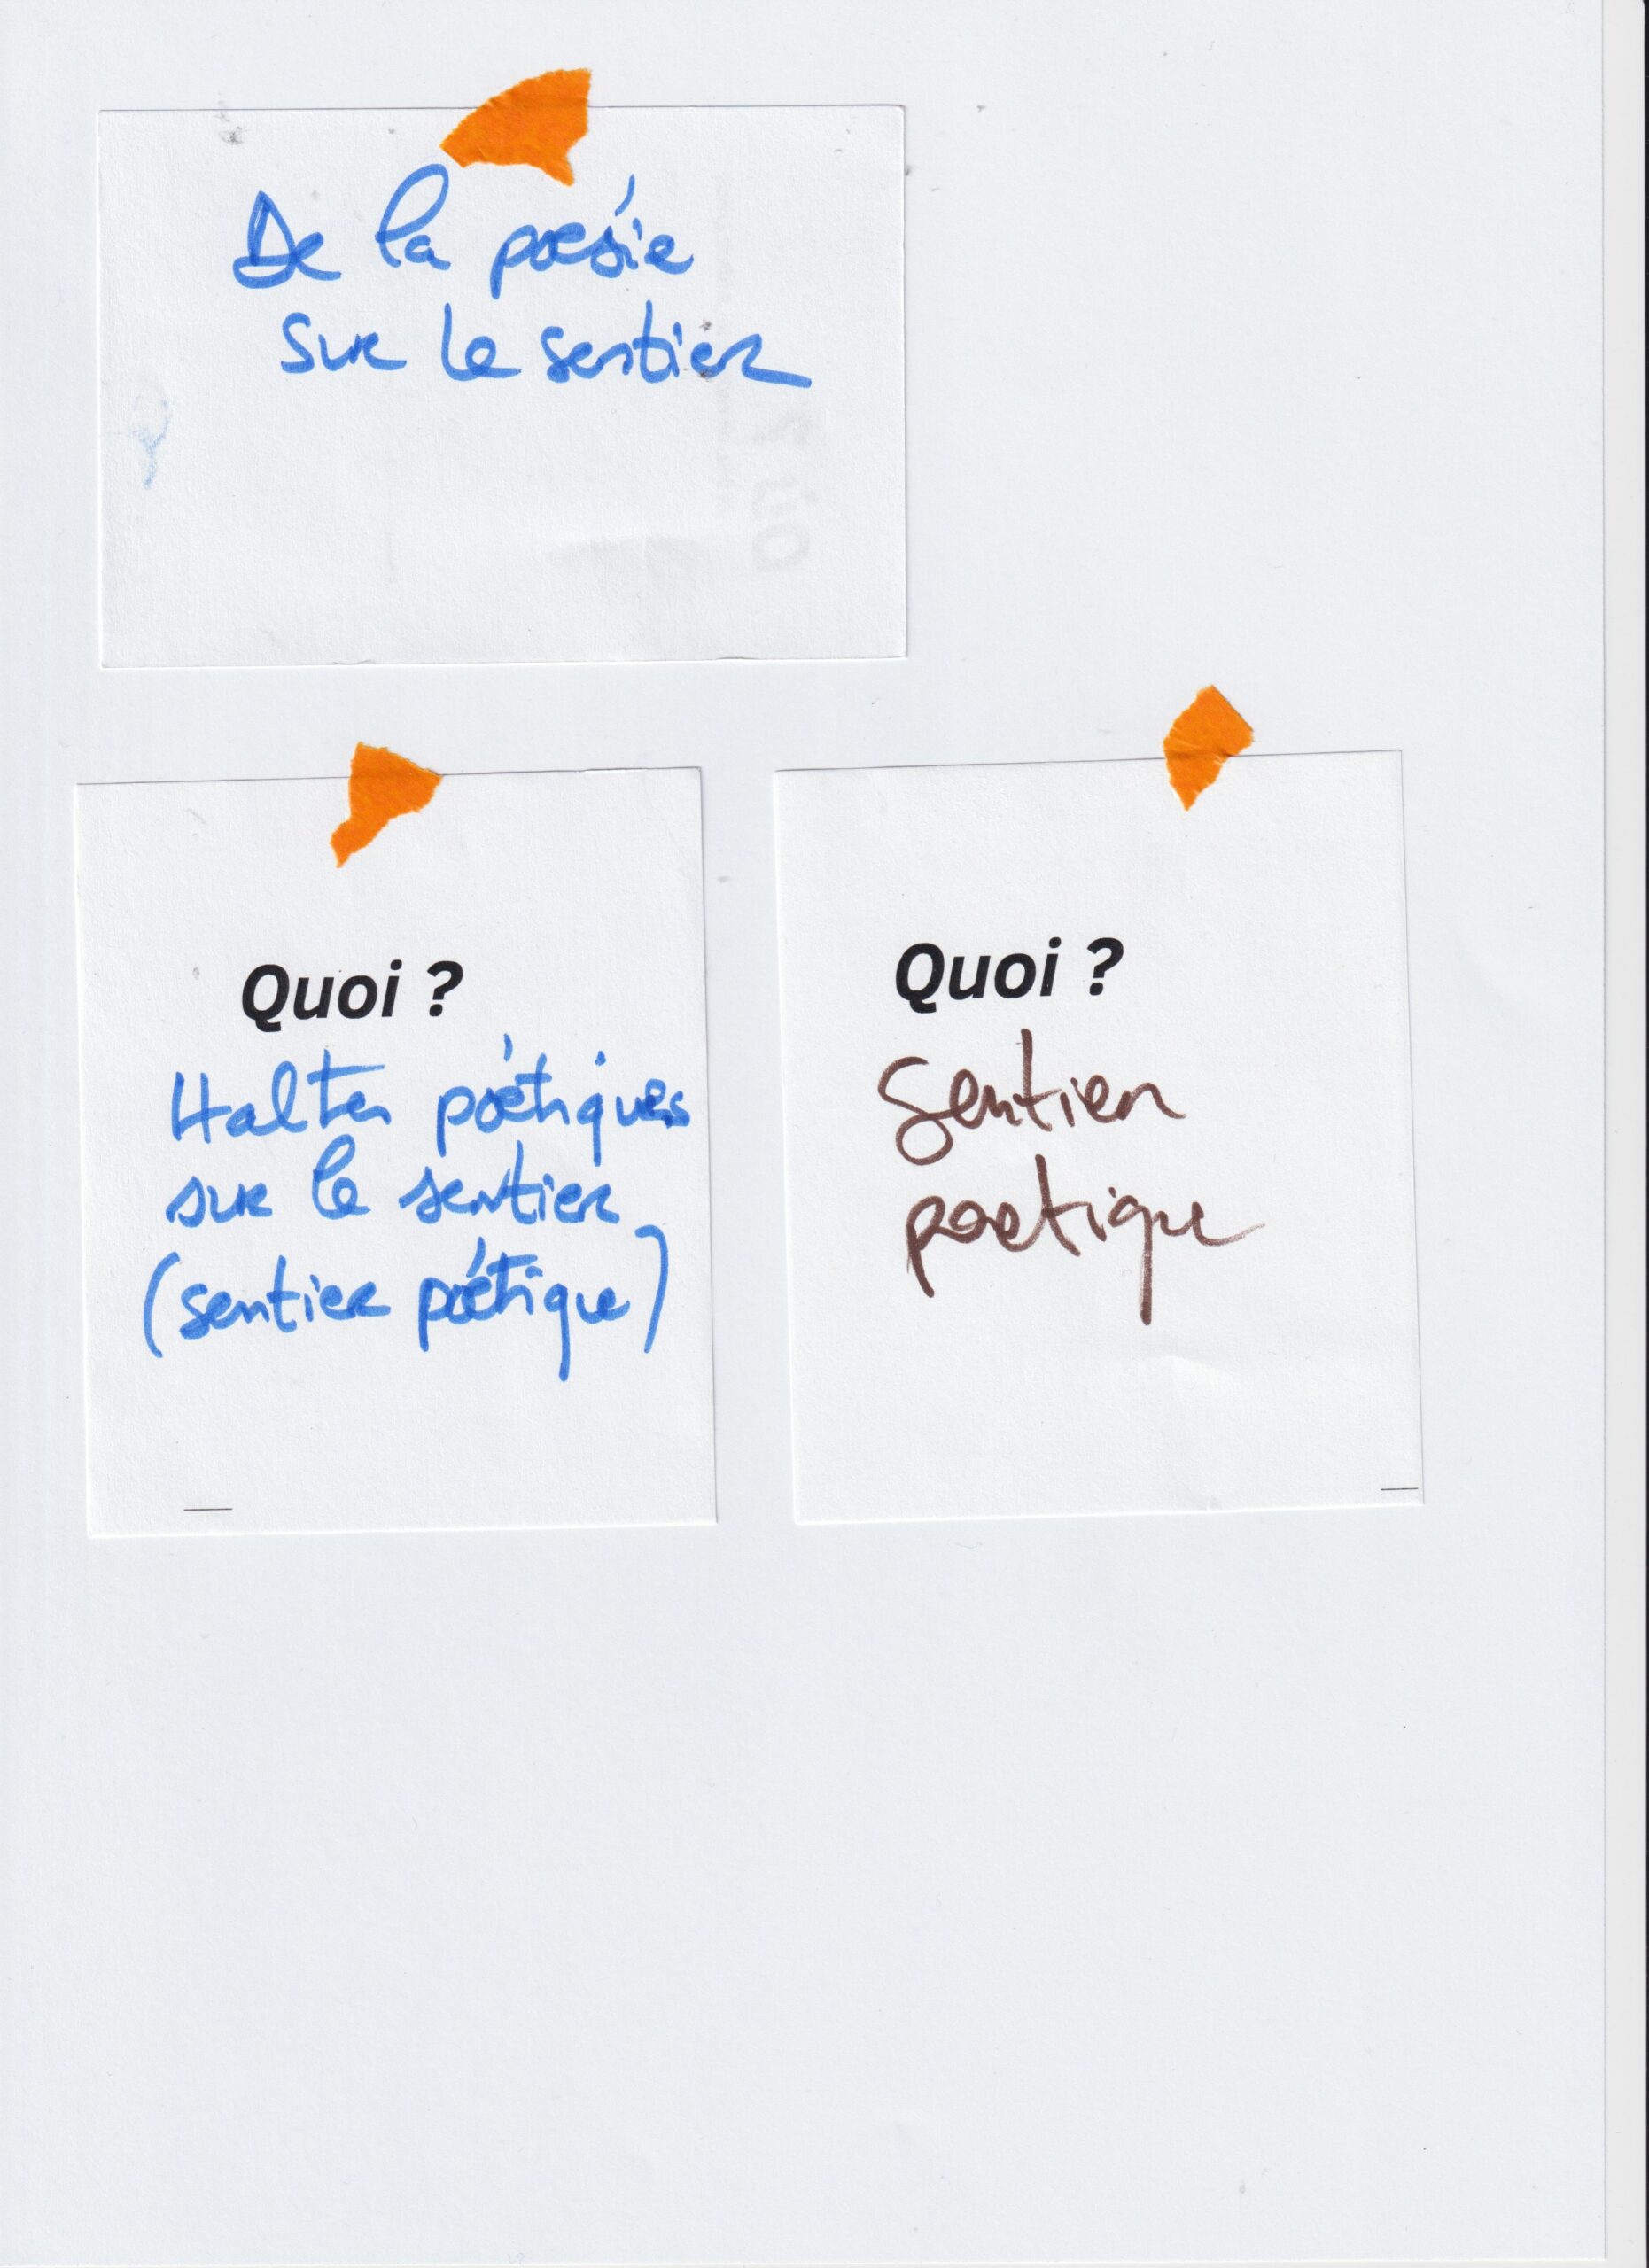 De la poésie
sur le sentier
Quoi ?
Haltes poétiques
sur le sentier
(sentier poétique)
Quoi ?
Sentier
poetique